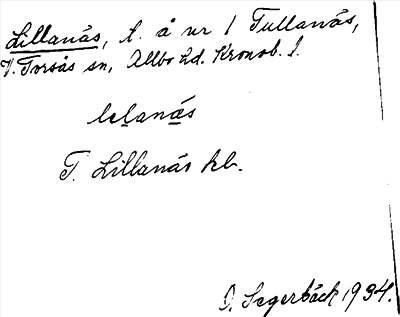 Lillanäs, t. å nr 1 Tullanäs,
V. Torsås sn, Allbo hd. Kronob. l.
lelanäs
T. Lillanäs hl.
O. Segerbäck 1934.